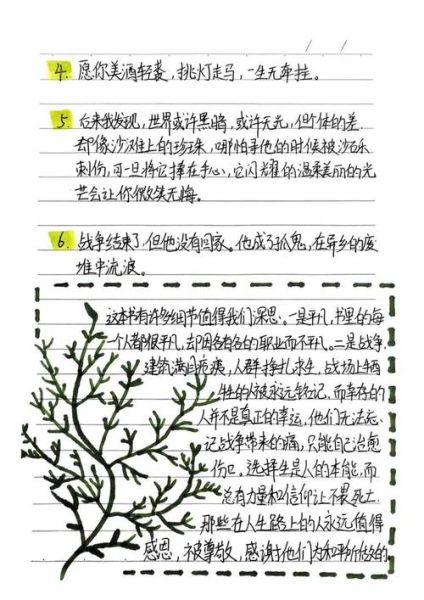 4. 愿你美酒轻裘，挑灯走马，一生无牵挂。
5. 后来我发现，世界或许黑暗，或许无光，但个体的差
却像沙滩上的珍珠，哪怕寻他的时候被沙砾
刺伤，可一旦将它捧在手心，它闪耀的温柔美丽的光
芒会让你微笑无悔。
6. 战争结束了，但他没有回家。他成了孤鬼，在异乡的废
堆中流浪。
这本书有许多细节值得我们深思。一是平凡，书里的每
一个人都很平凡，却因各自的职业而不平凡。二是战争，
建筑满目疮痍，人群挣扎求生，战场上牺
牲的人被永远铭记，而幸存的
人并不是真正的幸运，他们无法忘
记战争带来的痛，只能自己治愈
伤口。选择生是人的本能，而
总有力量和信仰让人不畏死亡.
那些在人生路上的人永远值得
感恩，被尊敬，感谢他们为和平所做的